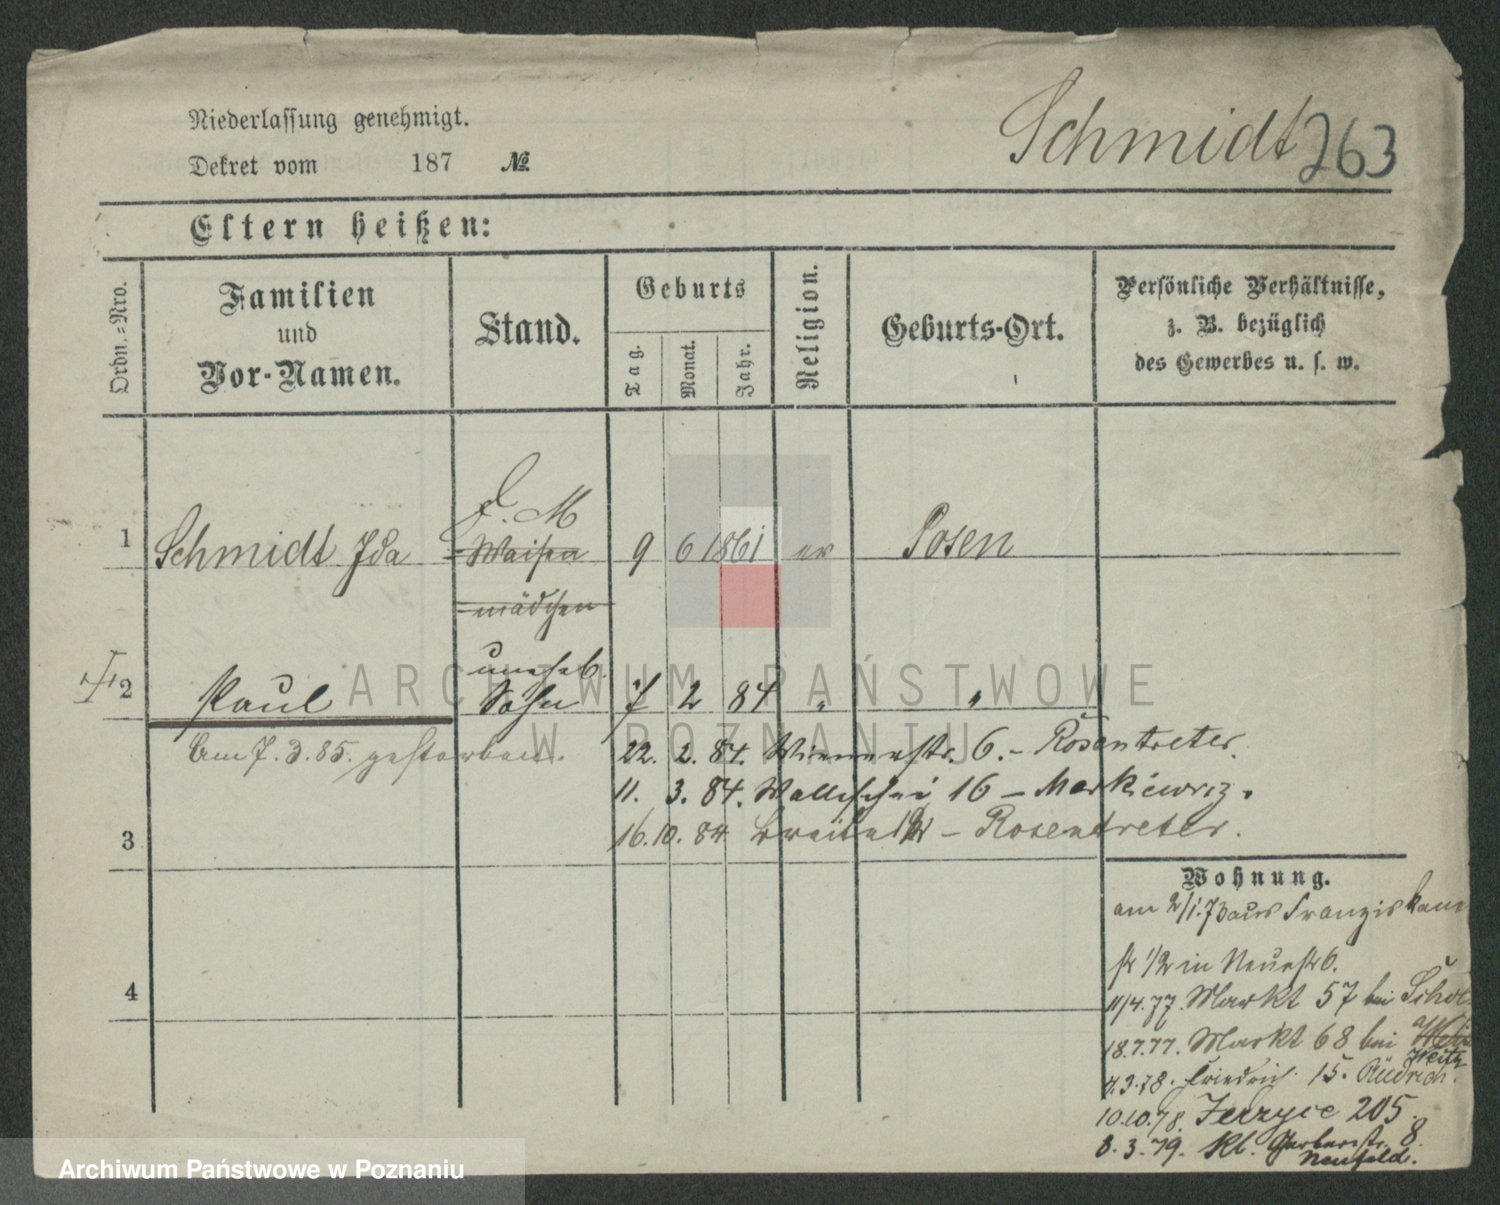 Niederlassung genehmigt.
Dekret vom 187 №
Schmidt 263
Eltern heißen:
Ordn.-Nro.
Familien
und
Vor-Namen.
Stand.
Geburts
Tag.
Monat.
Jahr.
Religion.
Geburts-Ort.
Persönliche Verhältnisse,
z. B. bezüglich
des Gewerbes u. s. w.
D. M
1 Schmidt Ida Waisen 9 6 1861 ev Posen
mädchen
uneheb.
2 Paul Sohn 7 2 84 " "
Am 7.3.85. gestorben.
22. 2. 84. Wienerstr. 6. - Rosentreter.
11. 3. 84. Wallischei 16 - Markiewicz.
3
16.10. 84 Breite - Rosentreter.
4
Wohnung.
am 2/1.73 aus Franziskan
str 1/2 in Neuestr 6.
11/4.77. Markt 57 bei
18.7.77. Markt 68 bei
Weitz
4.3.78. Friedrich. 15.
10.10.78. Jerzyce 205.
8.3.79. Kl. Gerberstr. 8.
Neufeld.
ARCHIWUM PAŃSTWOWE
W POZNANIU
Archiwum Państwowe w Poznaniu